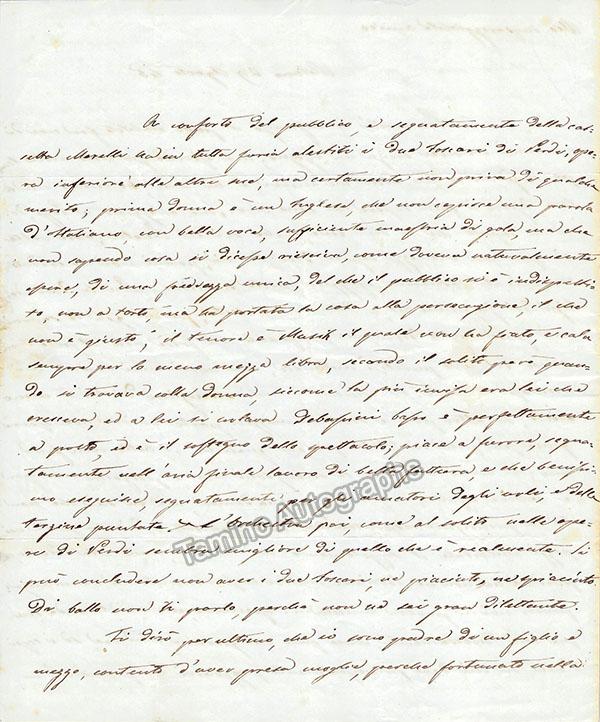 A conforto del pubblico, e segnatamente della cas-
setta Merelli ha in tutta furia alestiti i due Foscari di Verdi, ope-
ra inferiore alle altre sue, ma certamente non priva di qualche
merito; prima donna è un Inglesa, che non capisce una parola
d'Italiano, con bella voce, sufficiente maestria di gola, ma che
non sapendo cosa si dicesse riusciva, come doveva naturalmente
essere, di una freddezza unica, del che il pubblico si è indispetti-
to, non a torto, ma ha portata la cosa alla persecuzione, il che
non è giusto; il tenore è Musich il quale non ha fiato, e cala
sempre per lo meno mezza libra, secondo il solito però quan-
do si trovava colla donna, siccome la più invisa era lei che
cresceva, ed a lui si votava Debassini basso è perfettamente
a posto, ed è il sostegno dello spettacolo; piace a furore, segna-
tamente nell'aria finale lavoro di bella fattura, e che benissi-
mo eseguisce, segnatamente per gli amatori degli urli, e della
terzina puntata L'Orchestra poi, come al solito nelle ope-
re di Verdi sembra migliore di quello che è realmente Si
può concludere non aver i due Foscari, nè piaciuto, nè spiaciuto
Di ballo non ti parlo, perchè non ne sei gran dilettante.
Ti dirò per ultimo, che io sono padre di un figlio e
mezzo, contento d'aver presa moglie, perchè fortunato nella
Tamino Autographs